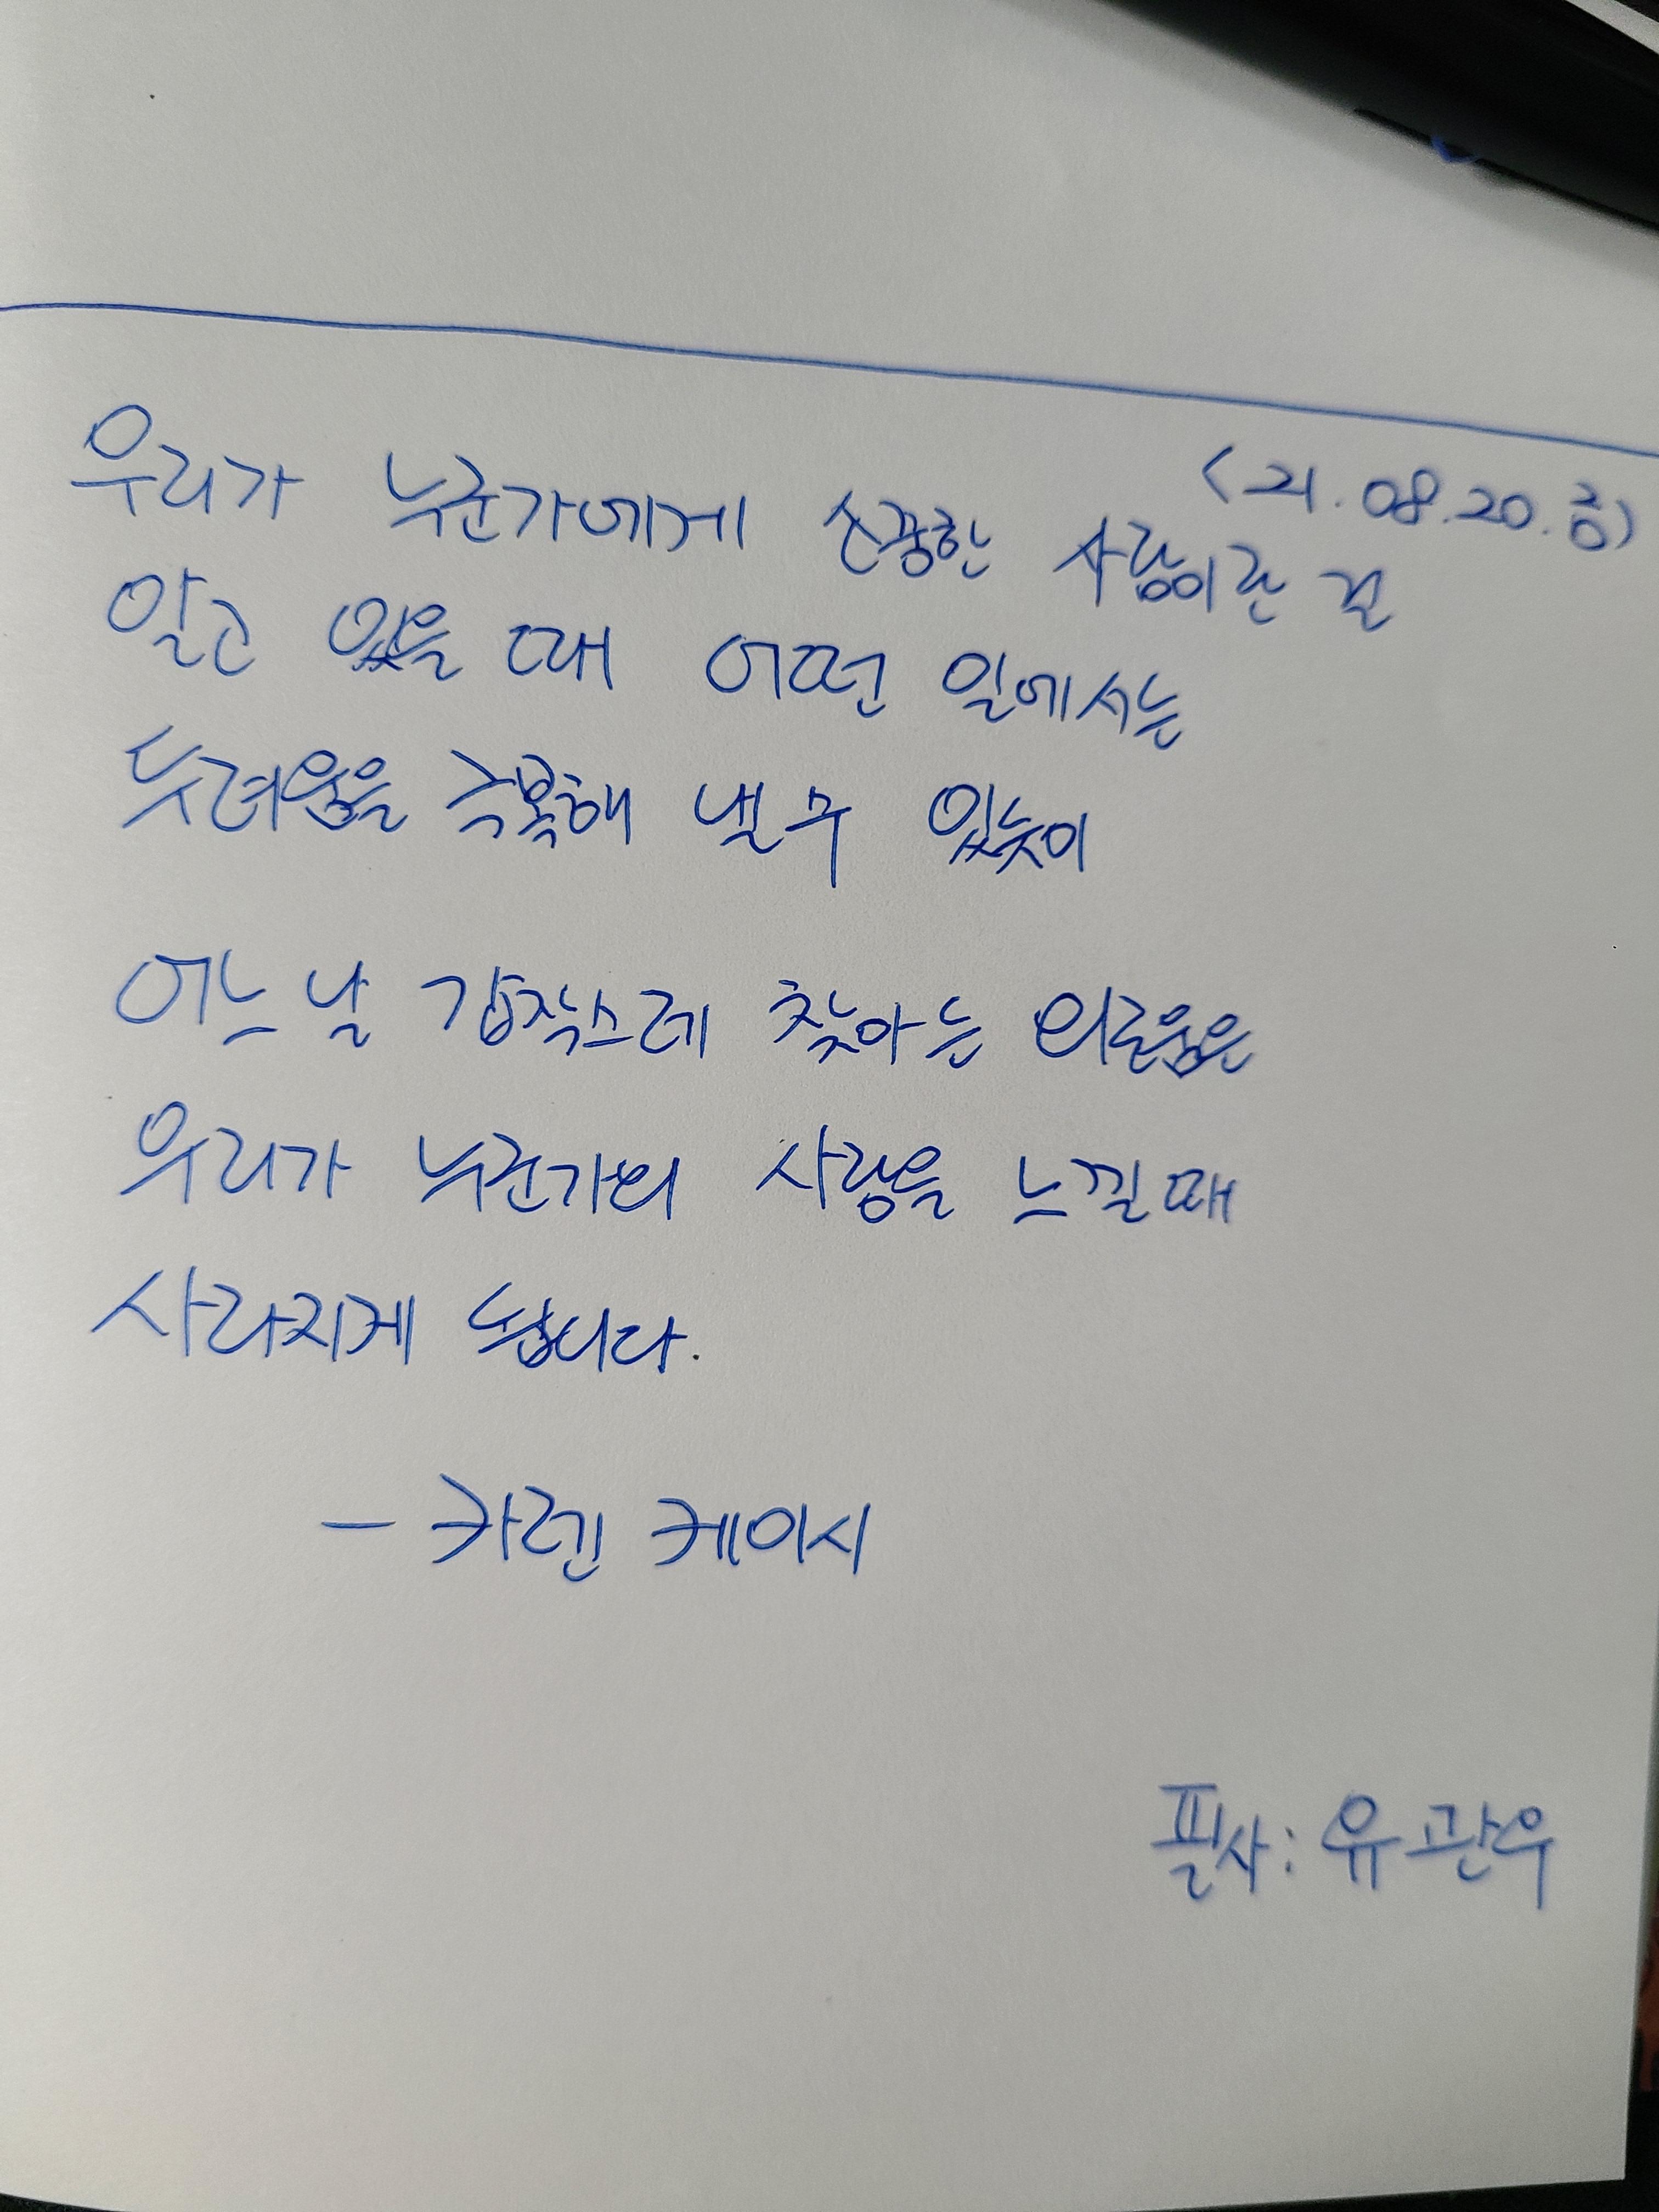 <21.08.20.금>
우리가 누군가에게 소중한 사람이란 걸
알고 있을 때 어떤 일에서는
두려움을 극복해 낼 수 있듯이
어느 날 갑작스레 찾아는 외로움은
우리가 누군가의 사랑을 느낄때
사라지게 됩니다.
– 카렌 케이시
필사: 유관우